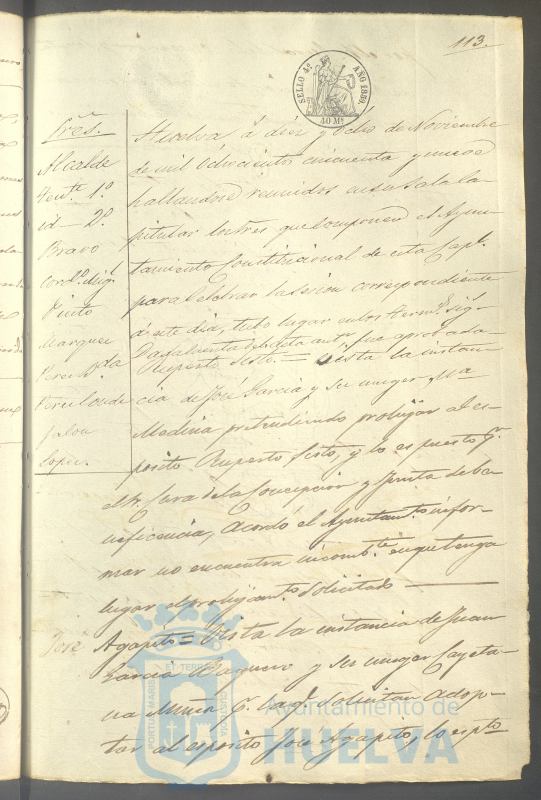 113.
SELLO 4º AÑO 1859.
40 Ms
Sres.
Alcalde
Tente. 1º
id. 2º
Bravo
Cordº. Migl.
Pinto
Marquez
Perez
Perez Conde
Jalon
Lopez.
Huelva, á diez y Ocho de Noviembre
de mil Ochocientos cincuenta y nueve
hallandose reunidos en su Sala Ca-
pitular los Sres que componen el Ayun-
tamiento Constitucional de esta Capl.
para Celebrar la sesion correspondiente
á este dia, tubo lugar en los termos. sigs.
Dada cuenta del acta antr. fue aprobada
Ruperto Sisto = Vista la instan-
cia de José Garcia y su muger Mª
Medina pretendiendo prohijar al es-
posito Ruperto Sisto, y lo espuesto pr.
el Sr. Cura de la Concepcion y Junta de be-
neficencia, acordó el Ayuntamto. infor-
mar no encuentra incombte. en que tenga
lugar el prohijamto. solicitado
José Agapito = Vista la instancia de Juan
Garcia Baquero y su muger Cayeta-
na Muñoz pr. la q. solicitan adop-
tar al esposito José Agapito, lo espto
PORTUS MARIS ET TERRAE CUSTODIA
Ayuntamiento de
HUELVA